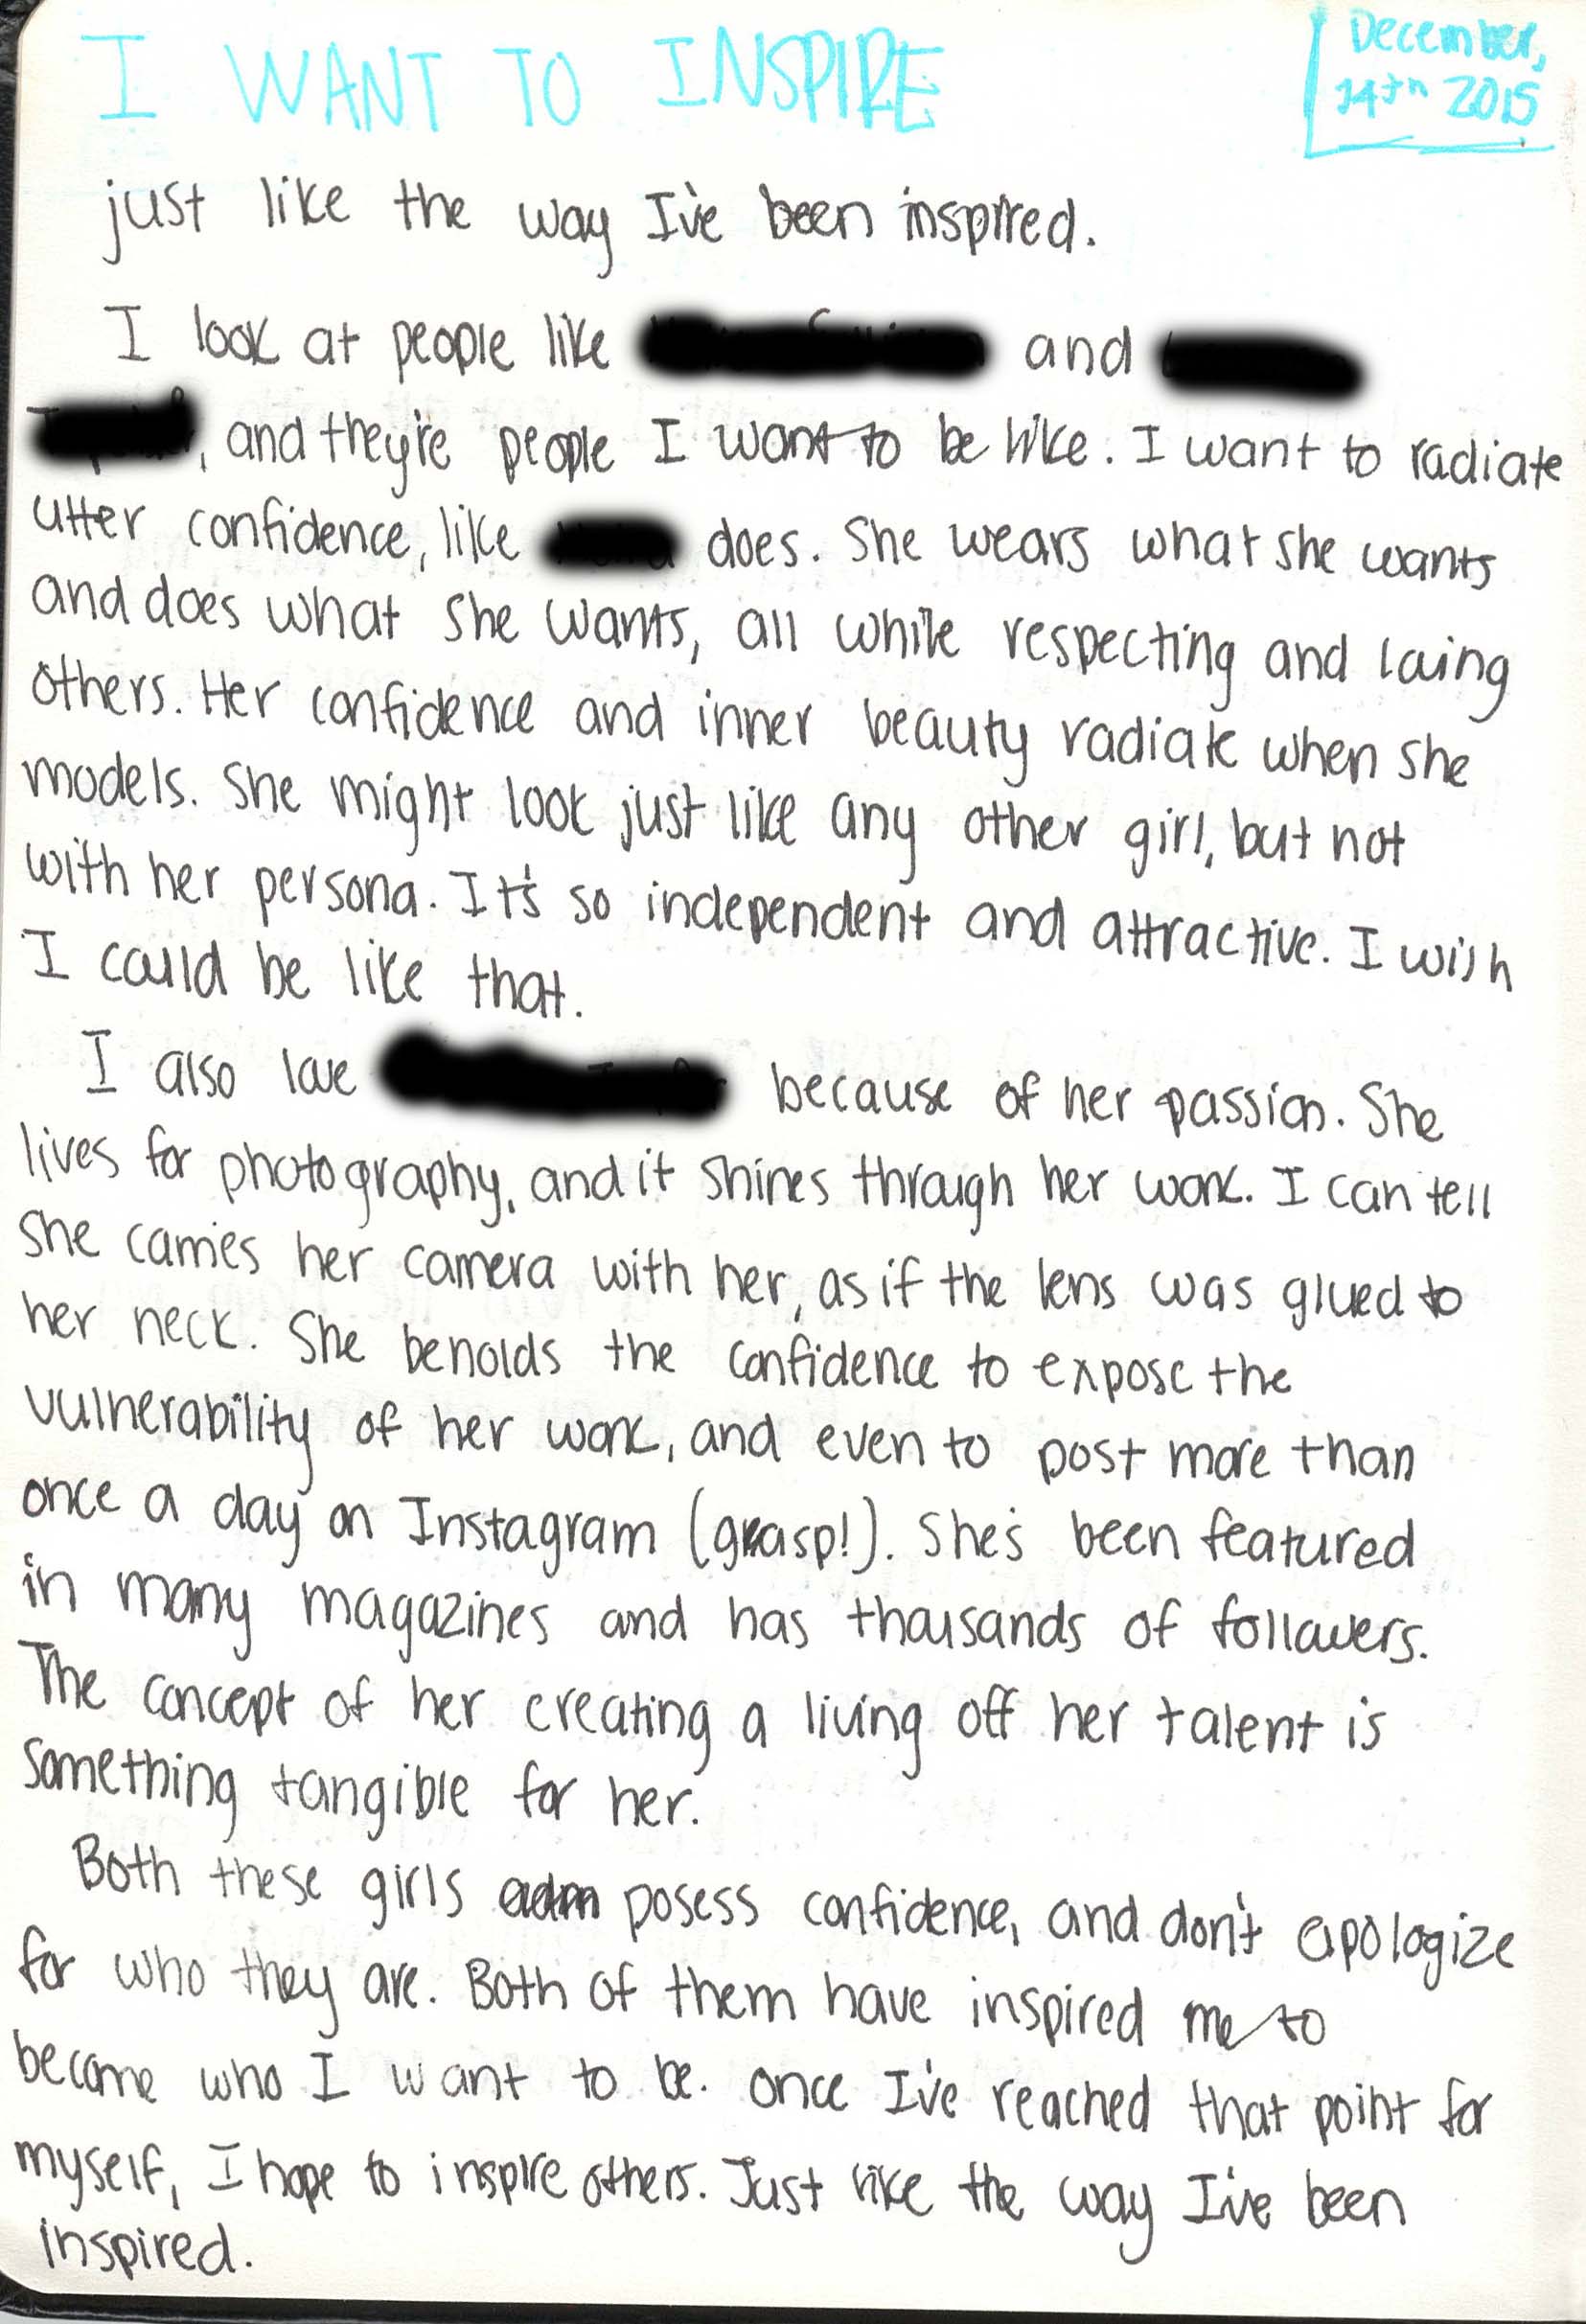 I WANT TO INSPIRE
December,
14th 2015
just like the way I've been inspired.
I look at people like and
, and they're people I want to be like. I want to radiate
utter confidence, like does. She wears what she wants
and does what she wants, all while respecting and loving
others. Her confidence and inner beauty radiate when she
models. She might look just like any other girl, but not
with her persona. It's so independent and attractive. I wish
I could be like that.
I also love because of her passion. She
lives for photography, and it shines through her work. I can tell
she carries her camera with her, as if the lens was glued to
her neck. She beholds the confidence to expose the
vulnerability of her work, and even to post more than
once a day on Instagram (gasp!). She's been featured
in many magazines and has thousands of followers.
The concept of her creating a living off her talent is
something tangible for her.
Both these girls posess confidence, and don't apologize
for who they are. Both of them have inspired me to
become who I want to be. once I've reached that point for
myself, I hope to inspire others. Just like the way I've been
inspired.